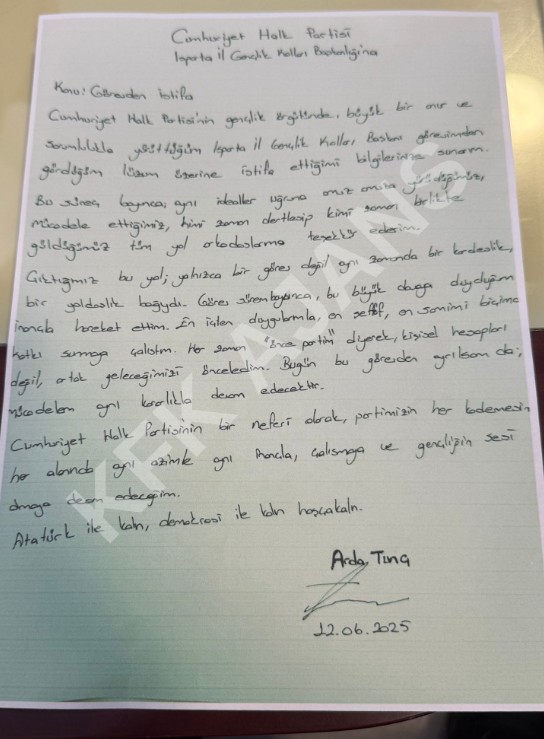 Cumhuriyet Halk Partisi
Isparta İl Gençlik Kolları Başkanlığına
Konu: Görevden istifa
Cumhuriyet Halk Partisi'nin gençlik örgütünde, büyük bir onur ve
sorumlulukla yürüttüğüm Isparta İl Gençlik Kolları Başkanı görevimden
gördüğüm lüzum üzerine istifa ettiğimi bilgilerinize sunarım.
Bu süreç boyunca; aynı idealler uğruna omuz omuza yürüdüğümüz,
mücadele ettiğimiz, kimi zaman dertleşip kimi zaman birlikte
güldüğümüz tüm yol arkadaşlarıma teşekkür ederim.
Çıktığımız bu yol; yalnızca bir görev değil aynı zamanda bir kardeşlik,
bir yoldaşlık bağıydı. Görev sürem boyunca, bu büyük davaya duyduğum
inançla hareket ettim. En içten duygularımla, en şeffaf, en samimi biçimde
katkı sunmaya çalıştım. Her zaman "önce partim" diyerek, kişisel hesapları
değil, ortak geleceğimizi önceledim. Bugün bu görevden ayrılsam da;
mücadelem aynı kararlılıkla devam edecektir.
Cumhuriyet Halk Partisinin bir neferi olarak, partimizin her kademesinde
her alanında aynı azimle aynı inançla, çalışmaya ve gençliğin sesi
olmaya devam edeceğim.
Atatürk ile kalın, demokrasi ile kalın hoşçakalın.
Arda Tunç
12.06.2025
KFK AJANS